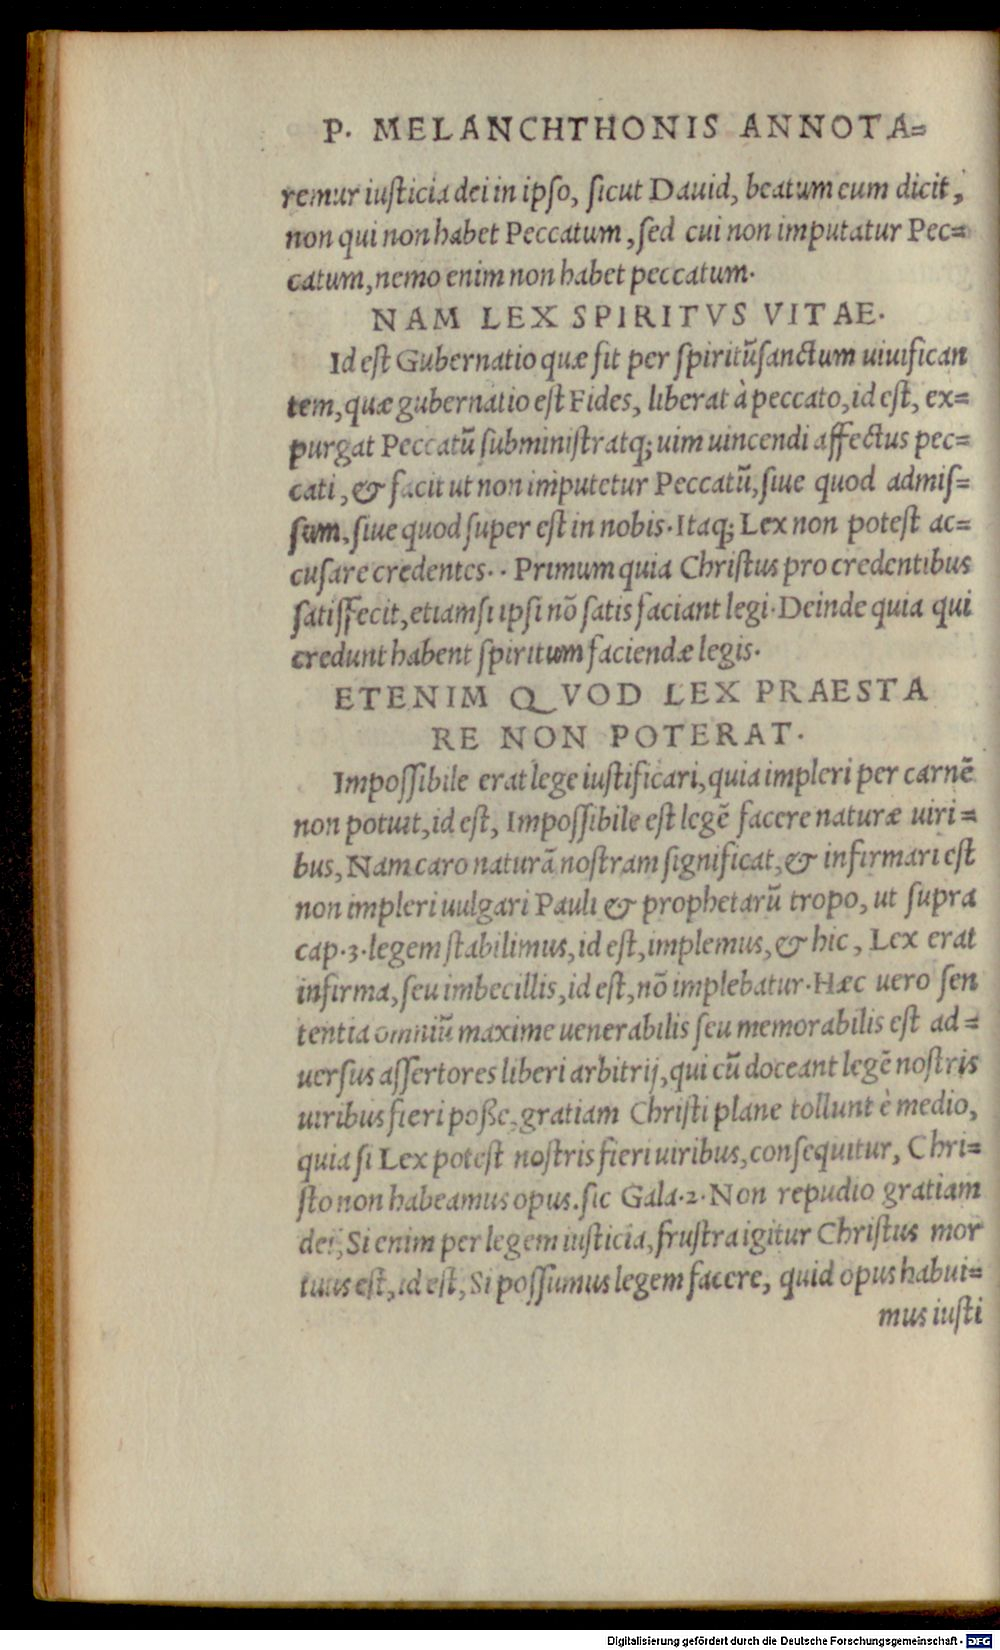 P. MELANCHTHONIS ANNOTA=
remur iuſticia dei in ipſo, ſicut Dauid, beatum eum dicit,
non qui non habet Peccatum, ſed cui non imputatur Pec=
catum, nemo enim non habet peccatum.
NAM LEX SPIRITVS VITAE.
Id eſt Gubernatio quæ fit per ſpiritũſanctum uiuifican
tem, quæ gubernatio eſt Fides, liberat à peccato, id eſt, ex=
purgat Peccatũ ſubminiſtratq; uim uincendi affectus pec=
cati, & facit ut non imputetur Peccatũ, ſiue quod admiſ=
ſum, ſiue quod ſuper eſt in nobis. Itaq; Lex non poteſt ac=
cuſare credentes. . Primum quia Chriſtus pro credentibus
ſatiſfecit, etiamſi ipſi nõ ſatis faciant legi. Deinde quia qui
credunt habent ſpiritum faciendæ legis.
ETENIM QVOD LEX PRAESTA
RE NON POTERAT.
Impoſſibile erat lege iuſtificari, quia impleri per carnẽ
non potuit, id eſt, Impoſſibile eſt legẽ facere naturæ uiri=
bus, Nam caro naturã noſtram ſignificat, & infirmari eſt
non impleri uulgari Pauli & prophetarũ tropo, ut ſupra
cap.3. legem ſtabilimus, id eſt, implemus, & hic, Lex erat
infirma, ſeu imbecillis, id eſt, nõ implebatur. Hæc uero ſen
tentia omniũ maxime uenerabilis ſeu memorabilis eſt ad=
uerſus aſſertores liberi arbitrij, qui cũ doceant legẽ noſtris
uiribus fieri poße, gratiam Chriſti plane tollunt è medio,
quia ſi Lex poteſt noſtris fieri uiribus, conſequitur, Chri=
ſto non habeamus opus. ſic Gala.2. Non repudio gratiam
dei, Si enim per legem iuſticia, fruſtra igitur Chriſtus mor
tuus eſt, id eſt, Si poſſumus legem facere, quid opus habui=
mus iuſti
Digitalisierung gefördert durch die Deutsche Forschungsgemeinschaft - DFG